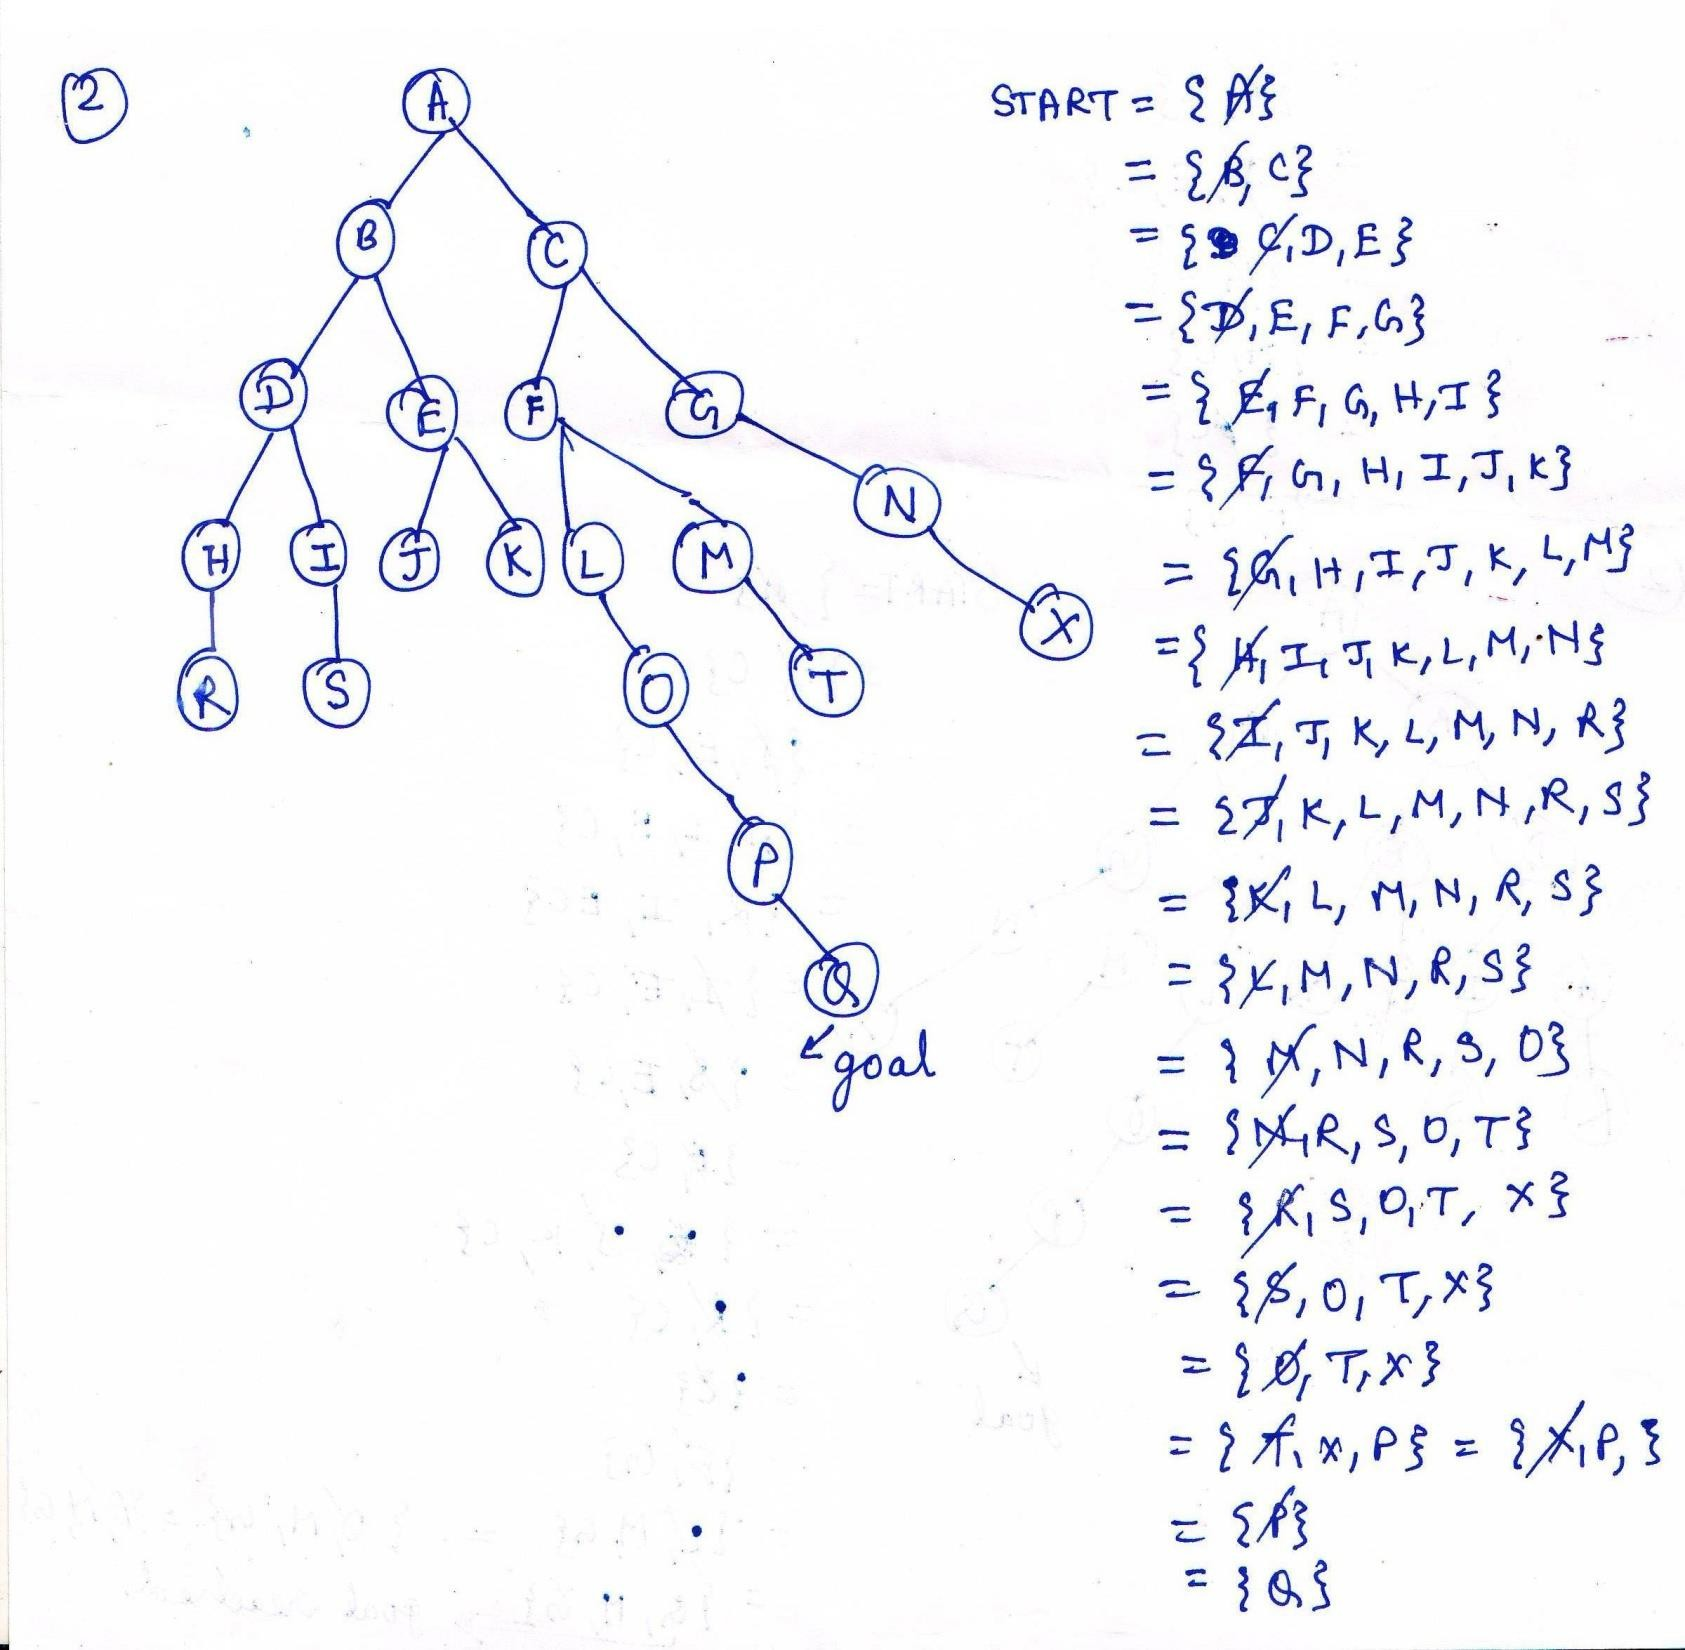 2
A
B C
D E F G
N
H I J K L M
X
R S O T
P
Q
goal
START = {A}
= {B, C}
= { C, D, E}
= {D, E, F, G}
= {E, F, G, H, I}
= {F, G, H, I, J, K}
= {G, H, I, J, K, L, M}
= {H, I, J, K, L, M, N}
= {I, J, K, L, M, N, R}
= {J, K, L, M, N, R, S}
= {K, L, M, N, R, S}
= {L, M, N, R, S}
= {M, N, R, S, O}
= {N, R, S, O, T}
= {R, S, O, T, X}
= {S, O, T, X}
= {O, T, X}
= {T, X, P} = {X, P, }
= {P}
= {Q}